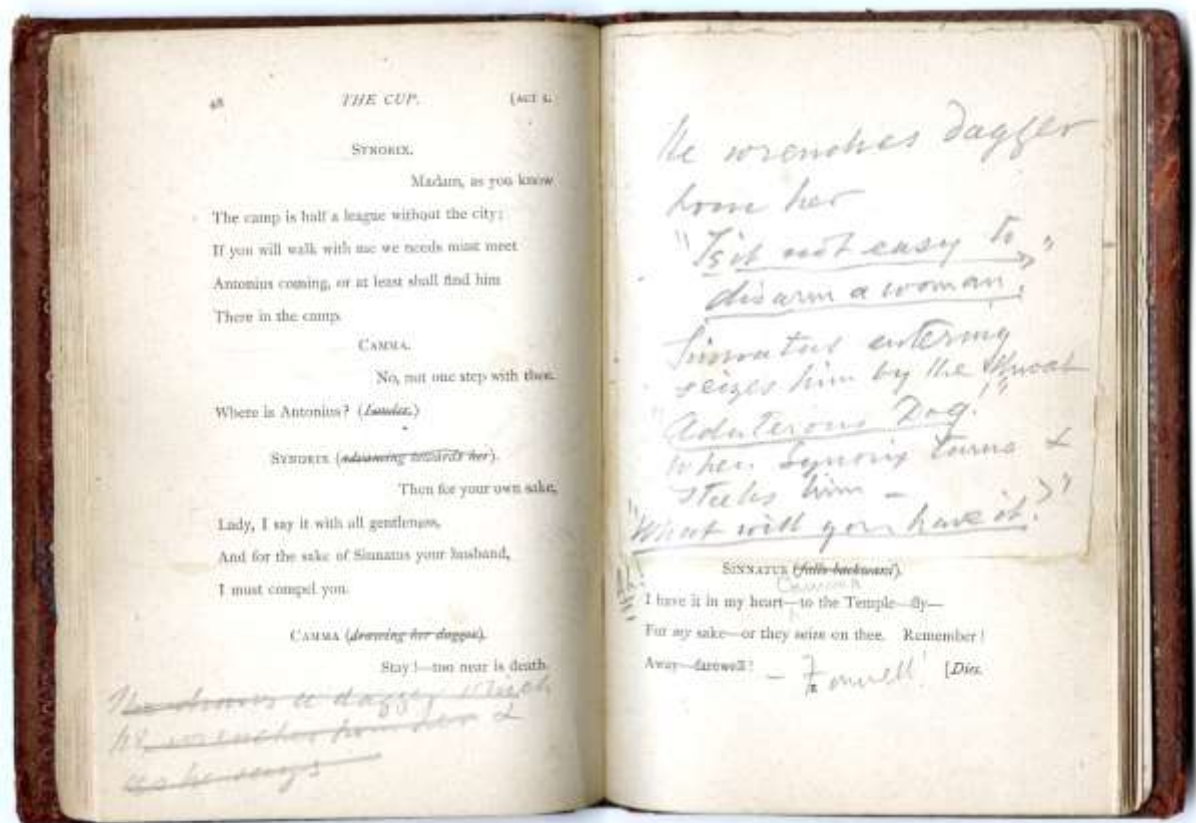 48 THE CUP. [ACT I.
SYNORIX.
Madam, as you know
The camp is half a league without the city;
If you will walk with me we needs must meet
Antonius coming, or at least shall find him
There in the camp.
CAMMA.
No, not one step with thee.
Where is Antonius? (Louder.)
SYNORIX (advancing towards her).
Then for your own sake,
Lady, I say it with all gentleness,
And for the sake of Sinnatus your husband,
I must compel you.
CAMMA (drawing her dagger).
Stay!—too near is death.
She draws a dagger which
he wrenches from her &
as he says
He wrenches dagger
from her
"Is it not easy to
disarm a woman."
Sinnatus entering
seizes him by the throat
"Adulterous Dog!"
when Synorix turns &
sticks him –
"What will you have it?"
SINNATUS (falls backward).
Ah!
Camma
I have it in my heart—to the Temple—fly—
For my sake—or they seize on thee. Remember!
Away—farewell! – Farewell! [Dies.